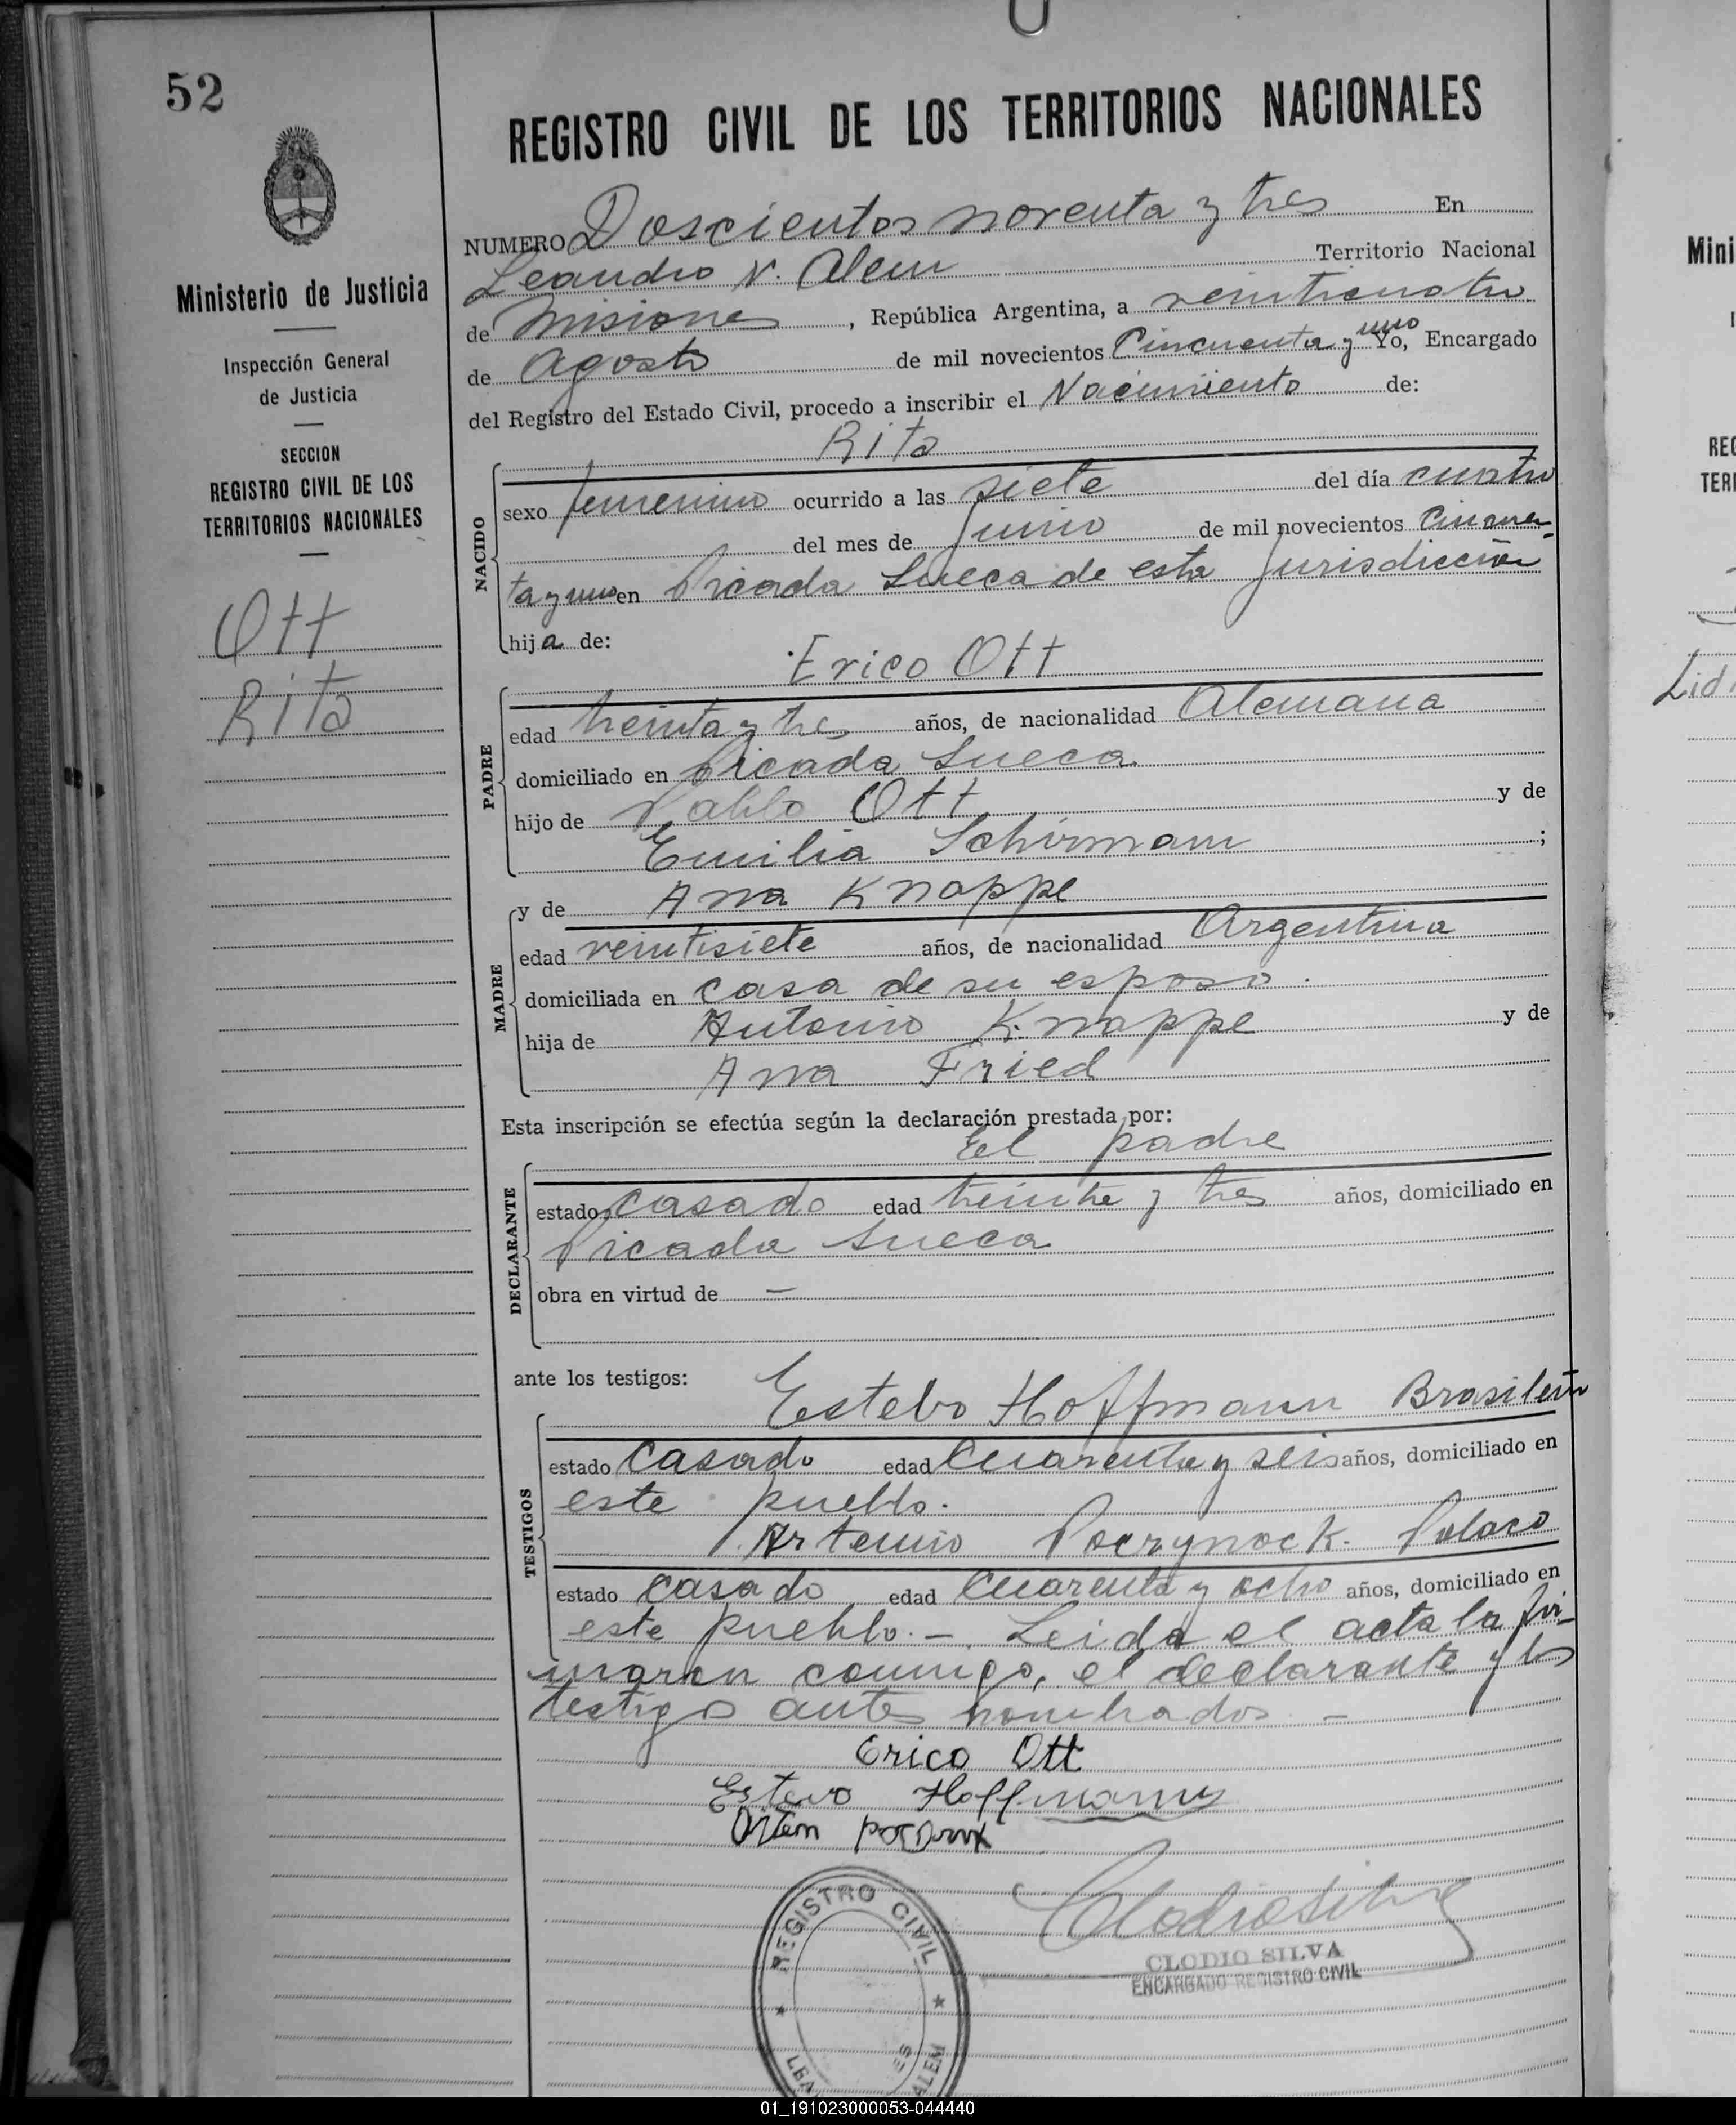 52
REGISTRO CIVIL DE LOS TERRITORIOS NACIONALES
NUMERO Doscientos noventa y tres En
Leandro N. Alem Territorio Nacional
de Misiones, República Argentina, a veinticuatro
de Agosto de mil novecientos Cincuenta y uno Yo, Encargado
del Registro del Estado Civil, procedo a inscribir el Nacimiento de:
Rita
Ministerio de Justicia
Inspección General
de Justicia
SECCION
REGISTRO CIVIL DE LOS
TERRITORIOS NACIONALES
Ott
Rita
NACIDO
sexo femenino ocurrido a las siete del día cuatro
del mes de Junio de mil novecientos Cincuen-
ta y uno en Picada Sueca de esta Jurisdicción
hija de:
Erico Ott
PADRE
edad treinta y tres años, de nacionalidad Alemana
domiciliado en Picada Sueca.
hijo de Pablo Ott y de
Emilia Schirmann ;
MADRE
y de Ana Knappe
edad veintisiete años, de nacionalidad Argentina
domiciliada en casa de su esposo.
hija de Antonio Knappe y de
Ana Fried
Esta inscripción se efectúa según la declaración prestada por:
El padre
DECLARANTE
estado casado edad treinta y tres años, domiciliado en
Picada Sueca
obra en virtud de —
ante los testigos:
Estebo Hoffmann Brasilero
TESTIGOS
estado Casado edad Cuarenta y seis años, domiciliado en
este pueblo.
Artemio Pocrynock. Polaco
estado casado edad Cuarenta y ocho años, domiciliado en
este pueblo. — Leida el acta la fir-
maron conmigo, el declarante y los
testigos antes nombrados —
Erico Ott
Estevo Hoffmann
Artem
Clodio Silva
CLODIO SILVA
ENCARGADO REGISTRO CIVIL
REGISTRO CIVIL
ALEM
Mini
REG
TERI
Lid
01_191023000053-044440